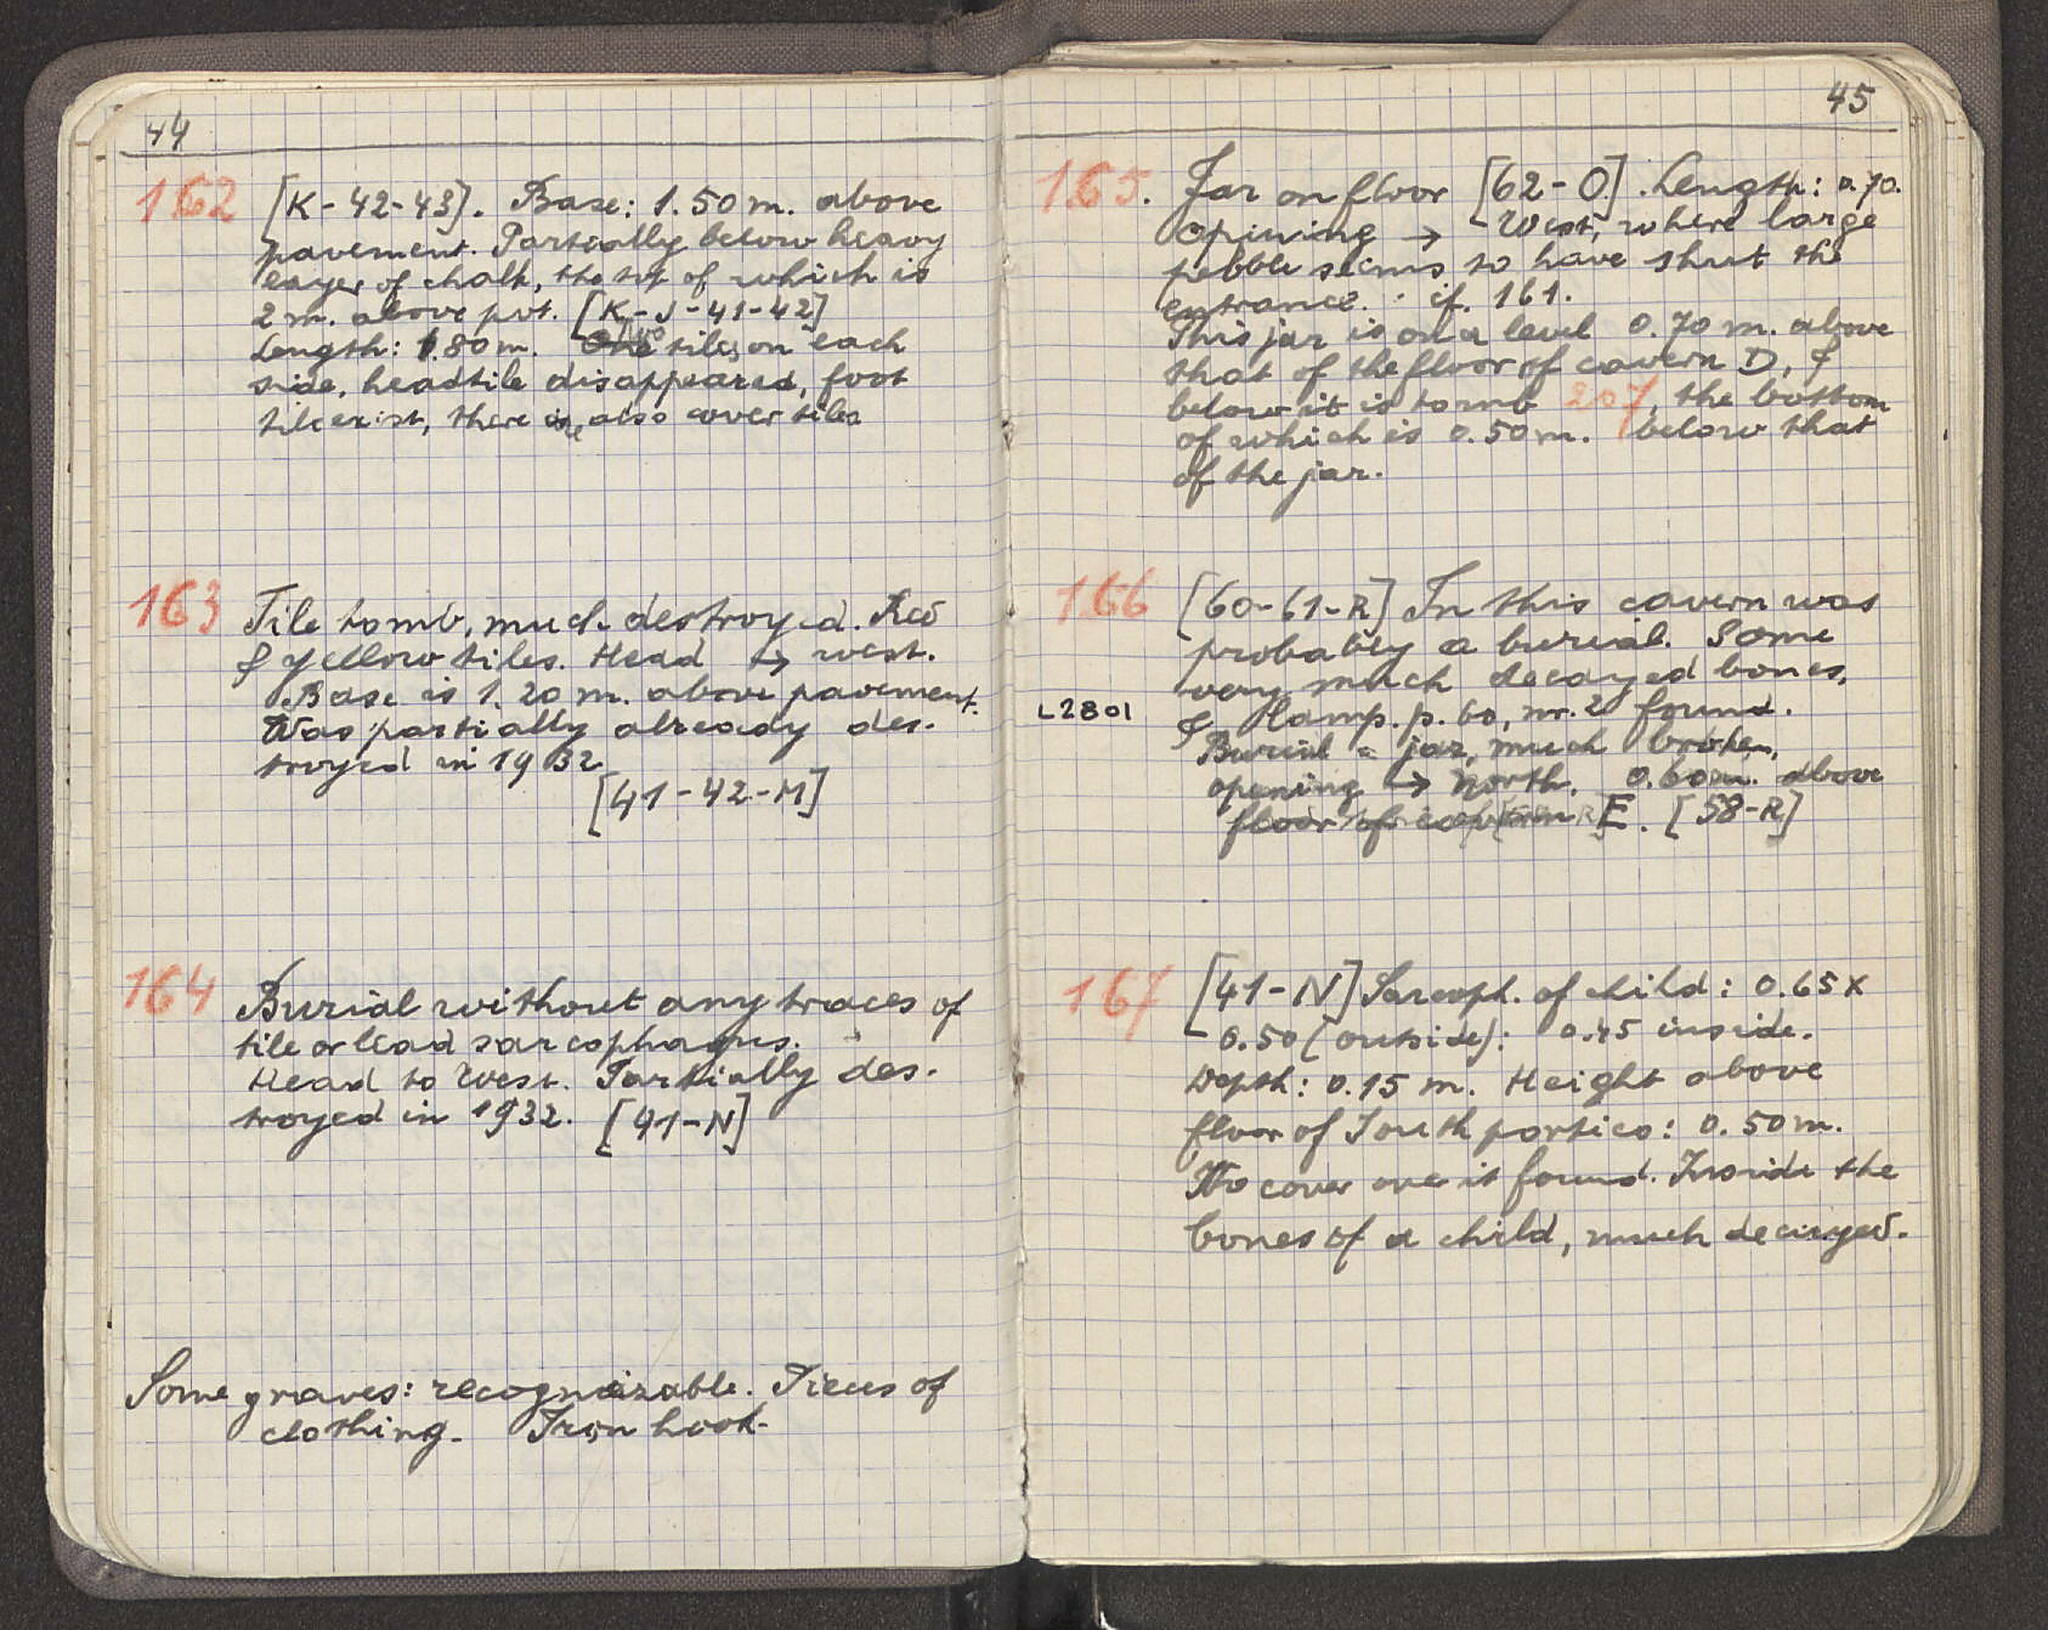 44
162 [K-42-43]. Base: 1.50 m. above
pavement. Partially below heavy
layer of chalk, the top of which is
2 m. above pvt. [K-J-41-42]
Length: 1.80 m. Two tiles on each
side, headtile disappeared, foot
tile exist, there are also cover tiles
163 Tile tomb, much destroyed. Red
& yellow tiles. Head → west.
Base is 1.20 m. above pavement.
Was partially already des-
troyed in 1932.
[41-42-M]
164 Burial without any traces of
tile or lead sarcophagus.
Head to West. Partially des-
troyed in 1932. [41-N]
Some graves: recognizable. Pieces of
clothing. Iron hook.
45
165. Jar on floor [62-O]. Length: 0.70.
Opining → West, where large
pebble seems to have shut the
entrance. cf. 161.
This jar is on a level 0.70 m. above
that of the floor of cavern D, &
below it is tomb 207, the bottom
of which is 0.50 m. below that
of the jar.
166 [60-61-R] In this cavern was
probably a burial. Some
very much decayed bones,
L2801 & lamp. p. 60, nr. 2 found.
Burial = jar, much broken,
opening → North. 0.60 m. above
floor of cavern E. [58-R]
167 [41-N] Sarcoph. of child: 0.65 x
0.50 (outside): 0.45 inside.
Depth: 0.15 m. Height above
floor of South portico: 0.50 m.
No cover over it found. Inside the
bones of a child, much decayed.